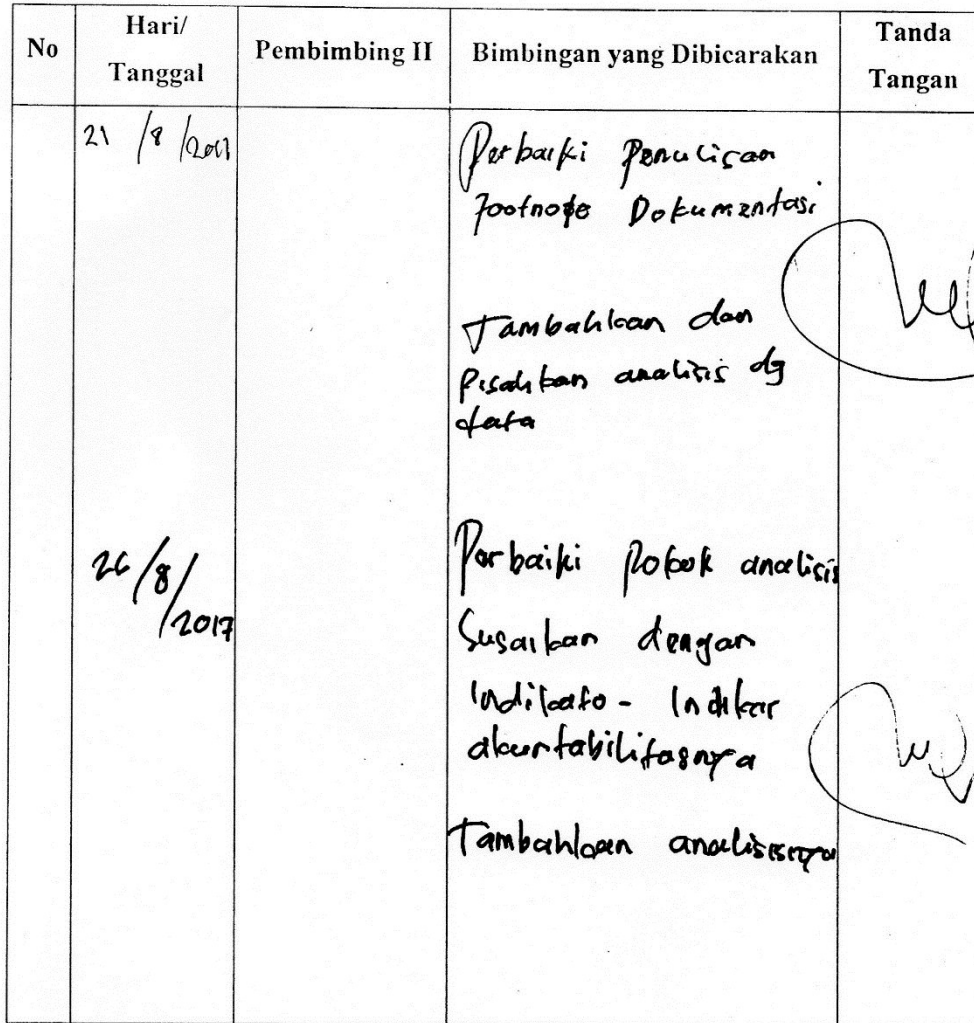 No
Hari/
Tanggal
Pembimbing II
Bimbingan yang Dibicarakan
Tanda
Tangan
21 /8 /2017
Perbaiki Penulisan
footnote Dokumentasi
Tambahkan dan
Pisahkan analisis dg
data
26/8/
2017
Perbaiki Pokok analisis
Susaikan dengan
Indikato - Indikar
akuntabilitasnya
Tambahkan analisisnya